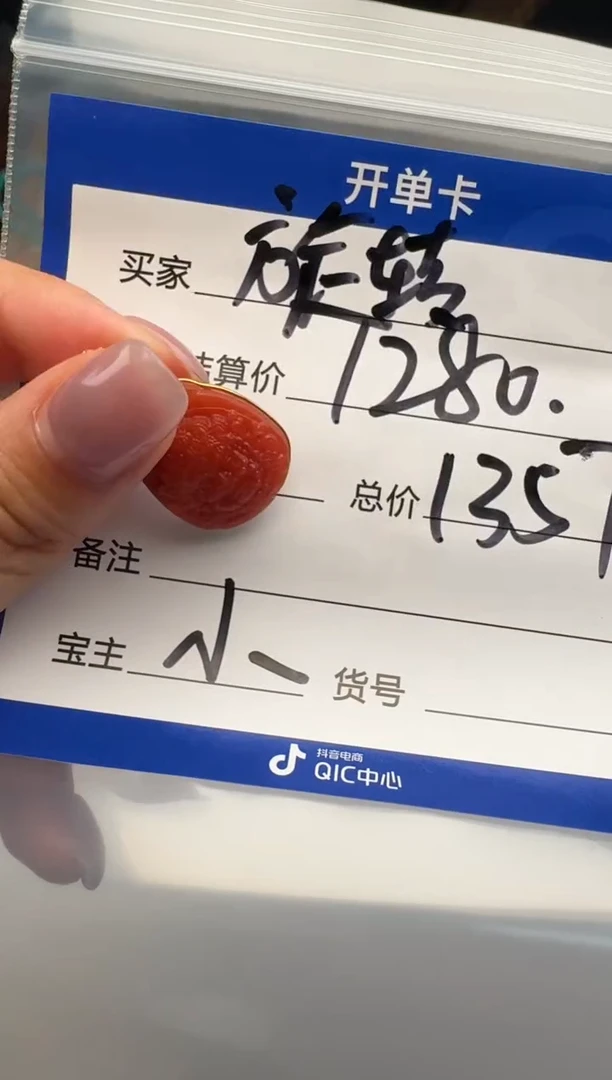 开单卡
买家 旋转
结算价 1280.
总价 135
备注
宝主 小一
货号
抖音电商
QIC中心